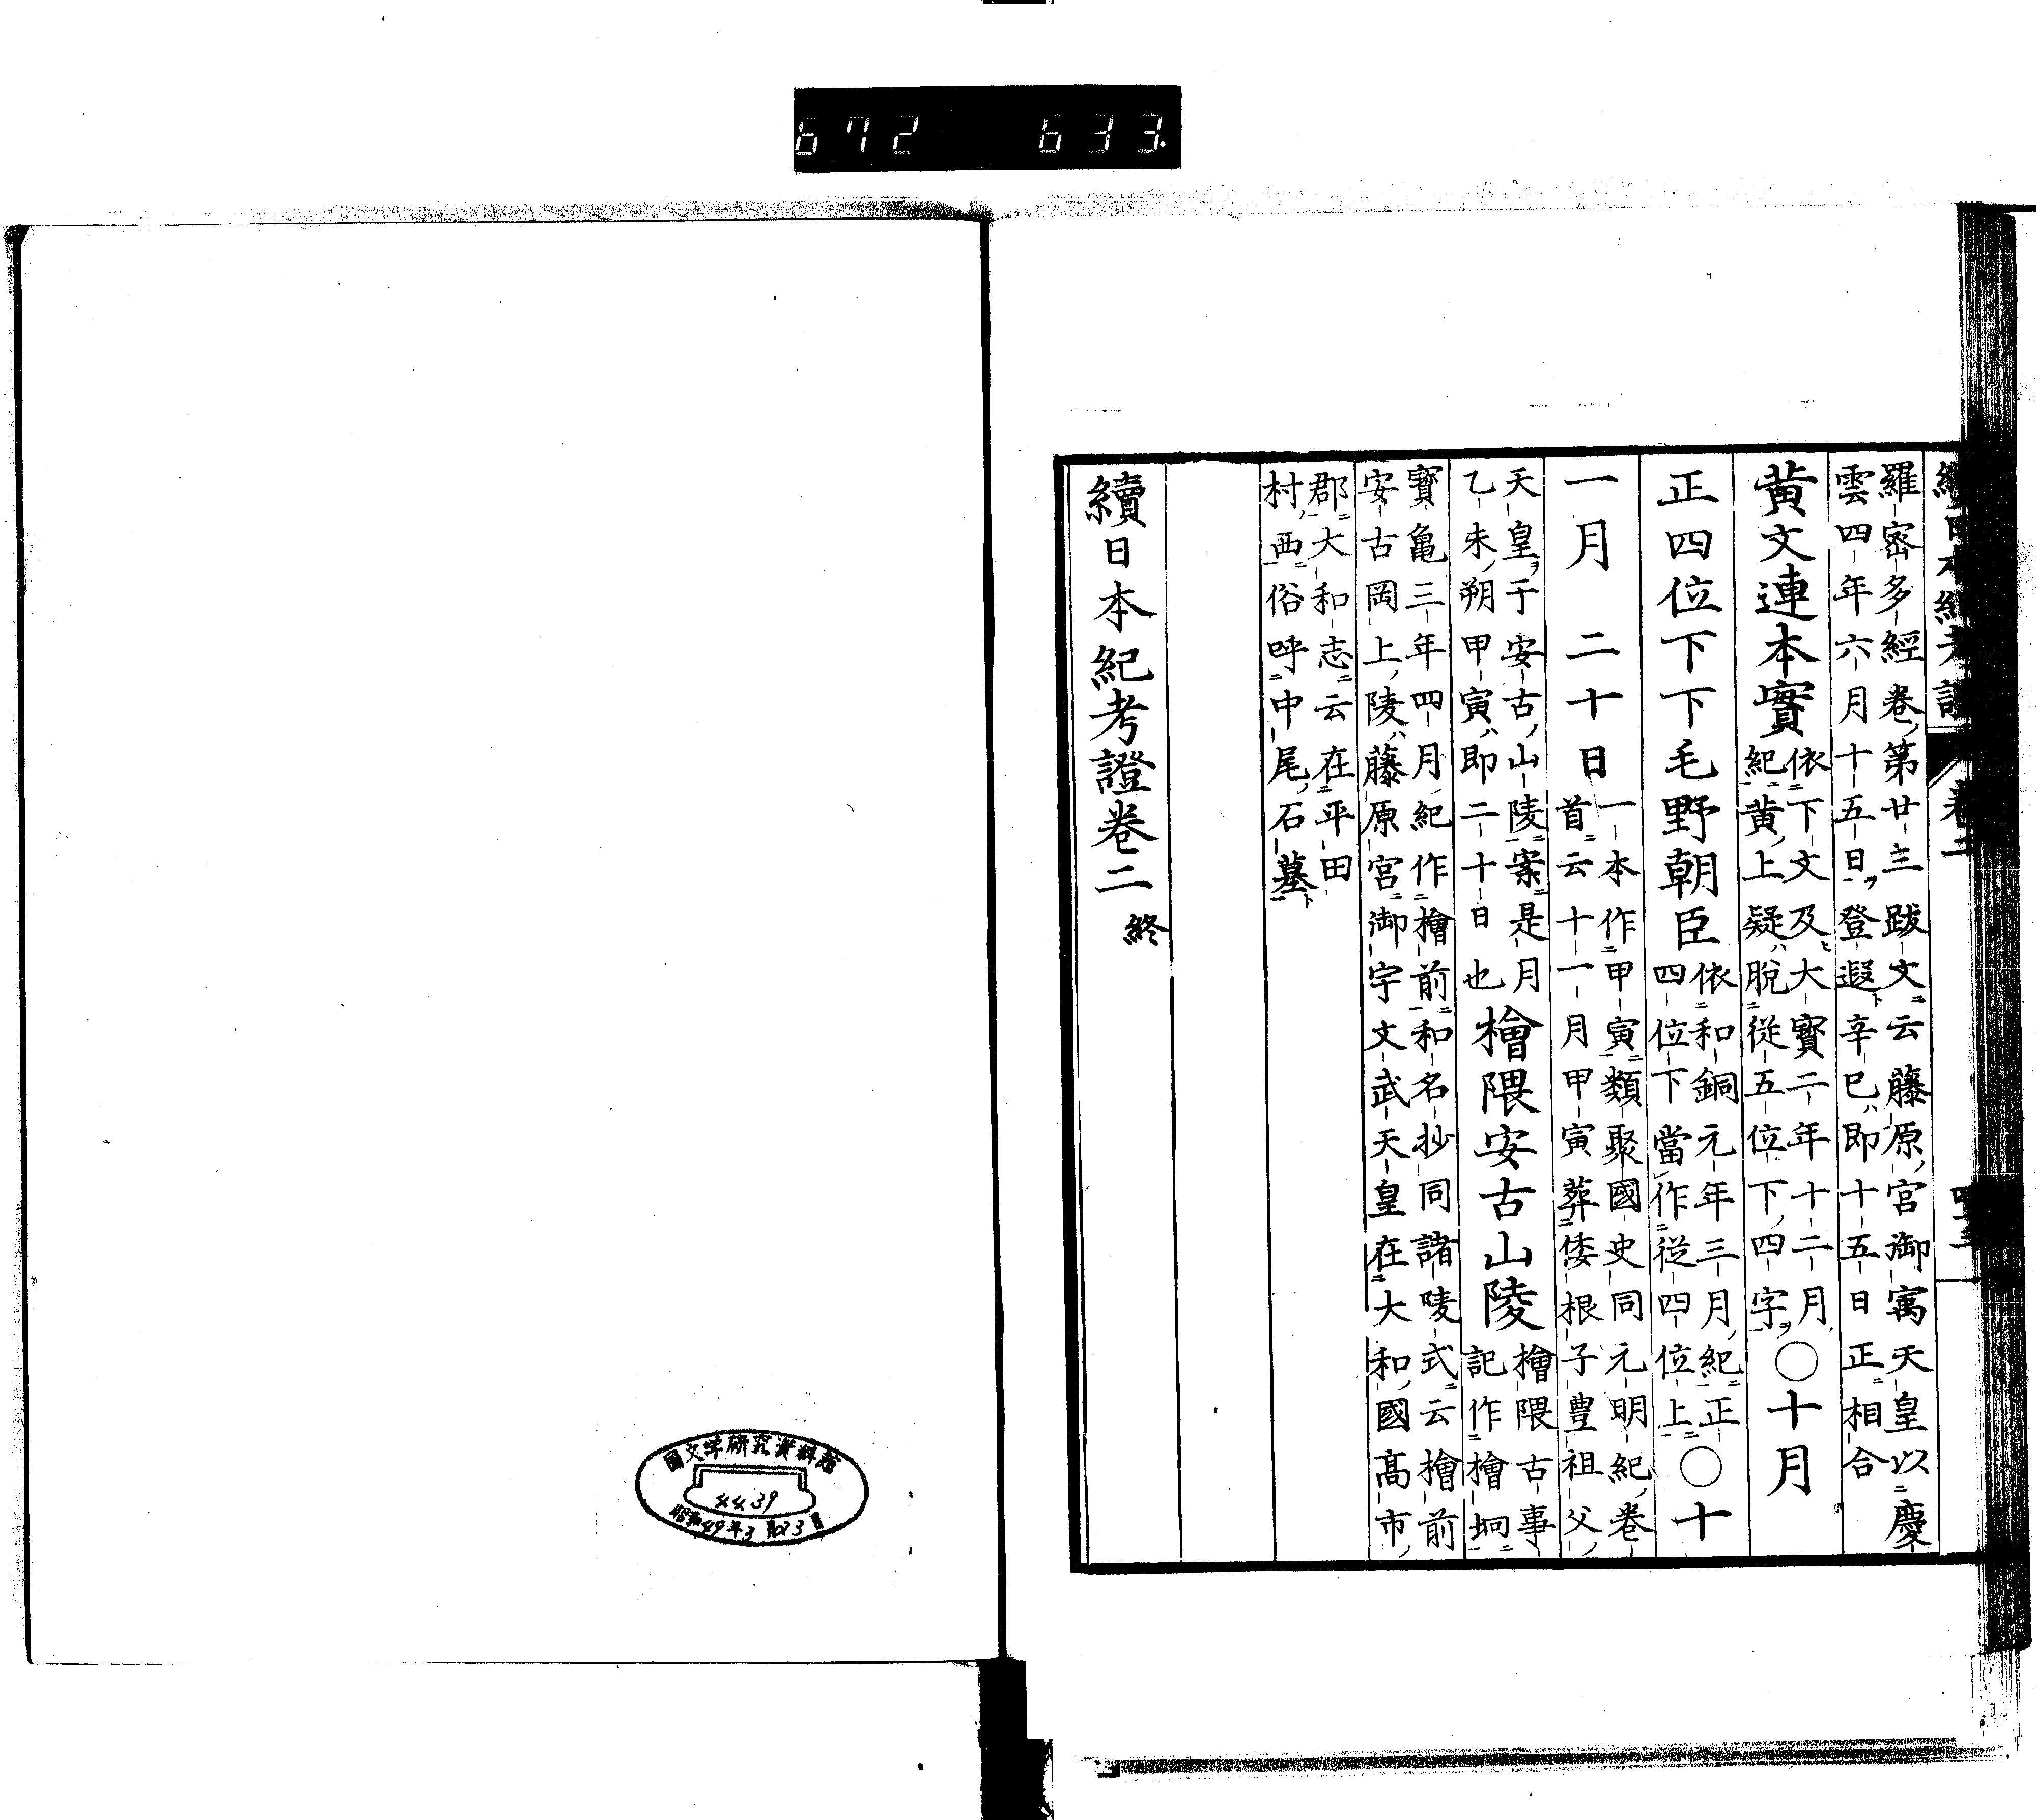 672 633.
續日本紀考證 卷二
羅密多經卷第廿三跋文云藤原宮御寓天皇以慶
雲四年六月十五日登遐辛巳即十五日正相合
黄文連本實 依下文及大寶二年十二月
紀黄上疑脫從五位下四字 〇十月
正四位下下毛野朝臣 依和銅元年三月紀正
四位下當作從四位上 〇十
一月 二十日 一本作甲寅類聚國史同元明紀卷
首云十一月甲寅葬倭根子豊祖父
天皇于安古山陵案是月
乙未朔甲寅即二十日也 檜隈安古山陵 檜隈古事
記作檜坰
寳亀三年四月紀作檜前和名抄同諸陵式云檜前
安古岡上陵藤原宮御宇文武天皇在大和國髙市
郡大和志云在平田
村西俗呼中尾石墓
續日本紀考證卷二 終
國文学研究資料館
4439
昭和49年3月23日